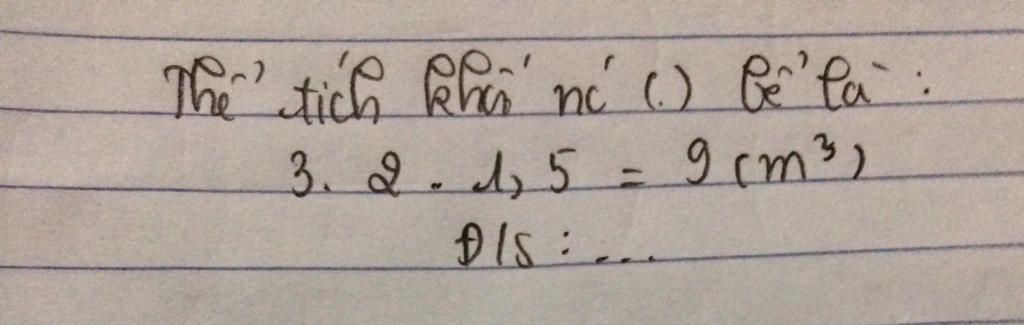 Thể tích khối nc (.) bể là :
3. 2 . 1,5 = 9 (m³)
Đ/S : ...